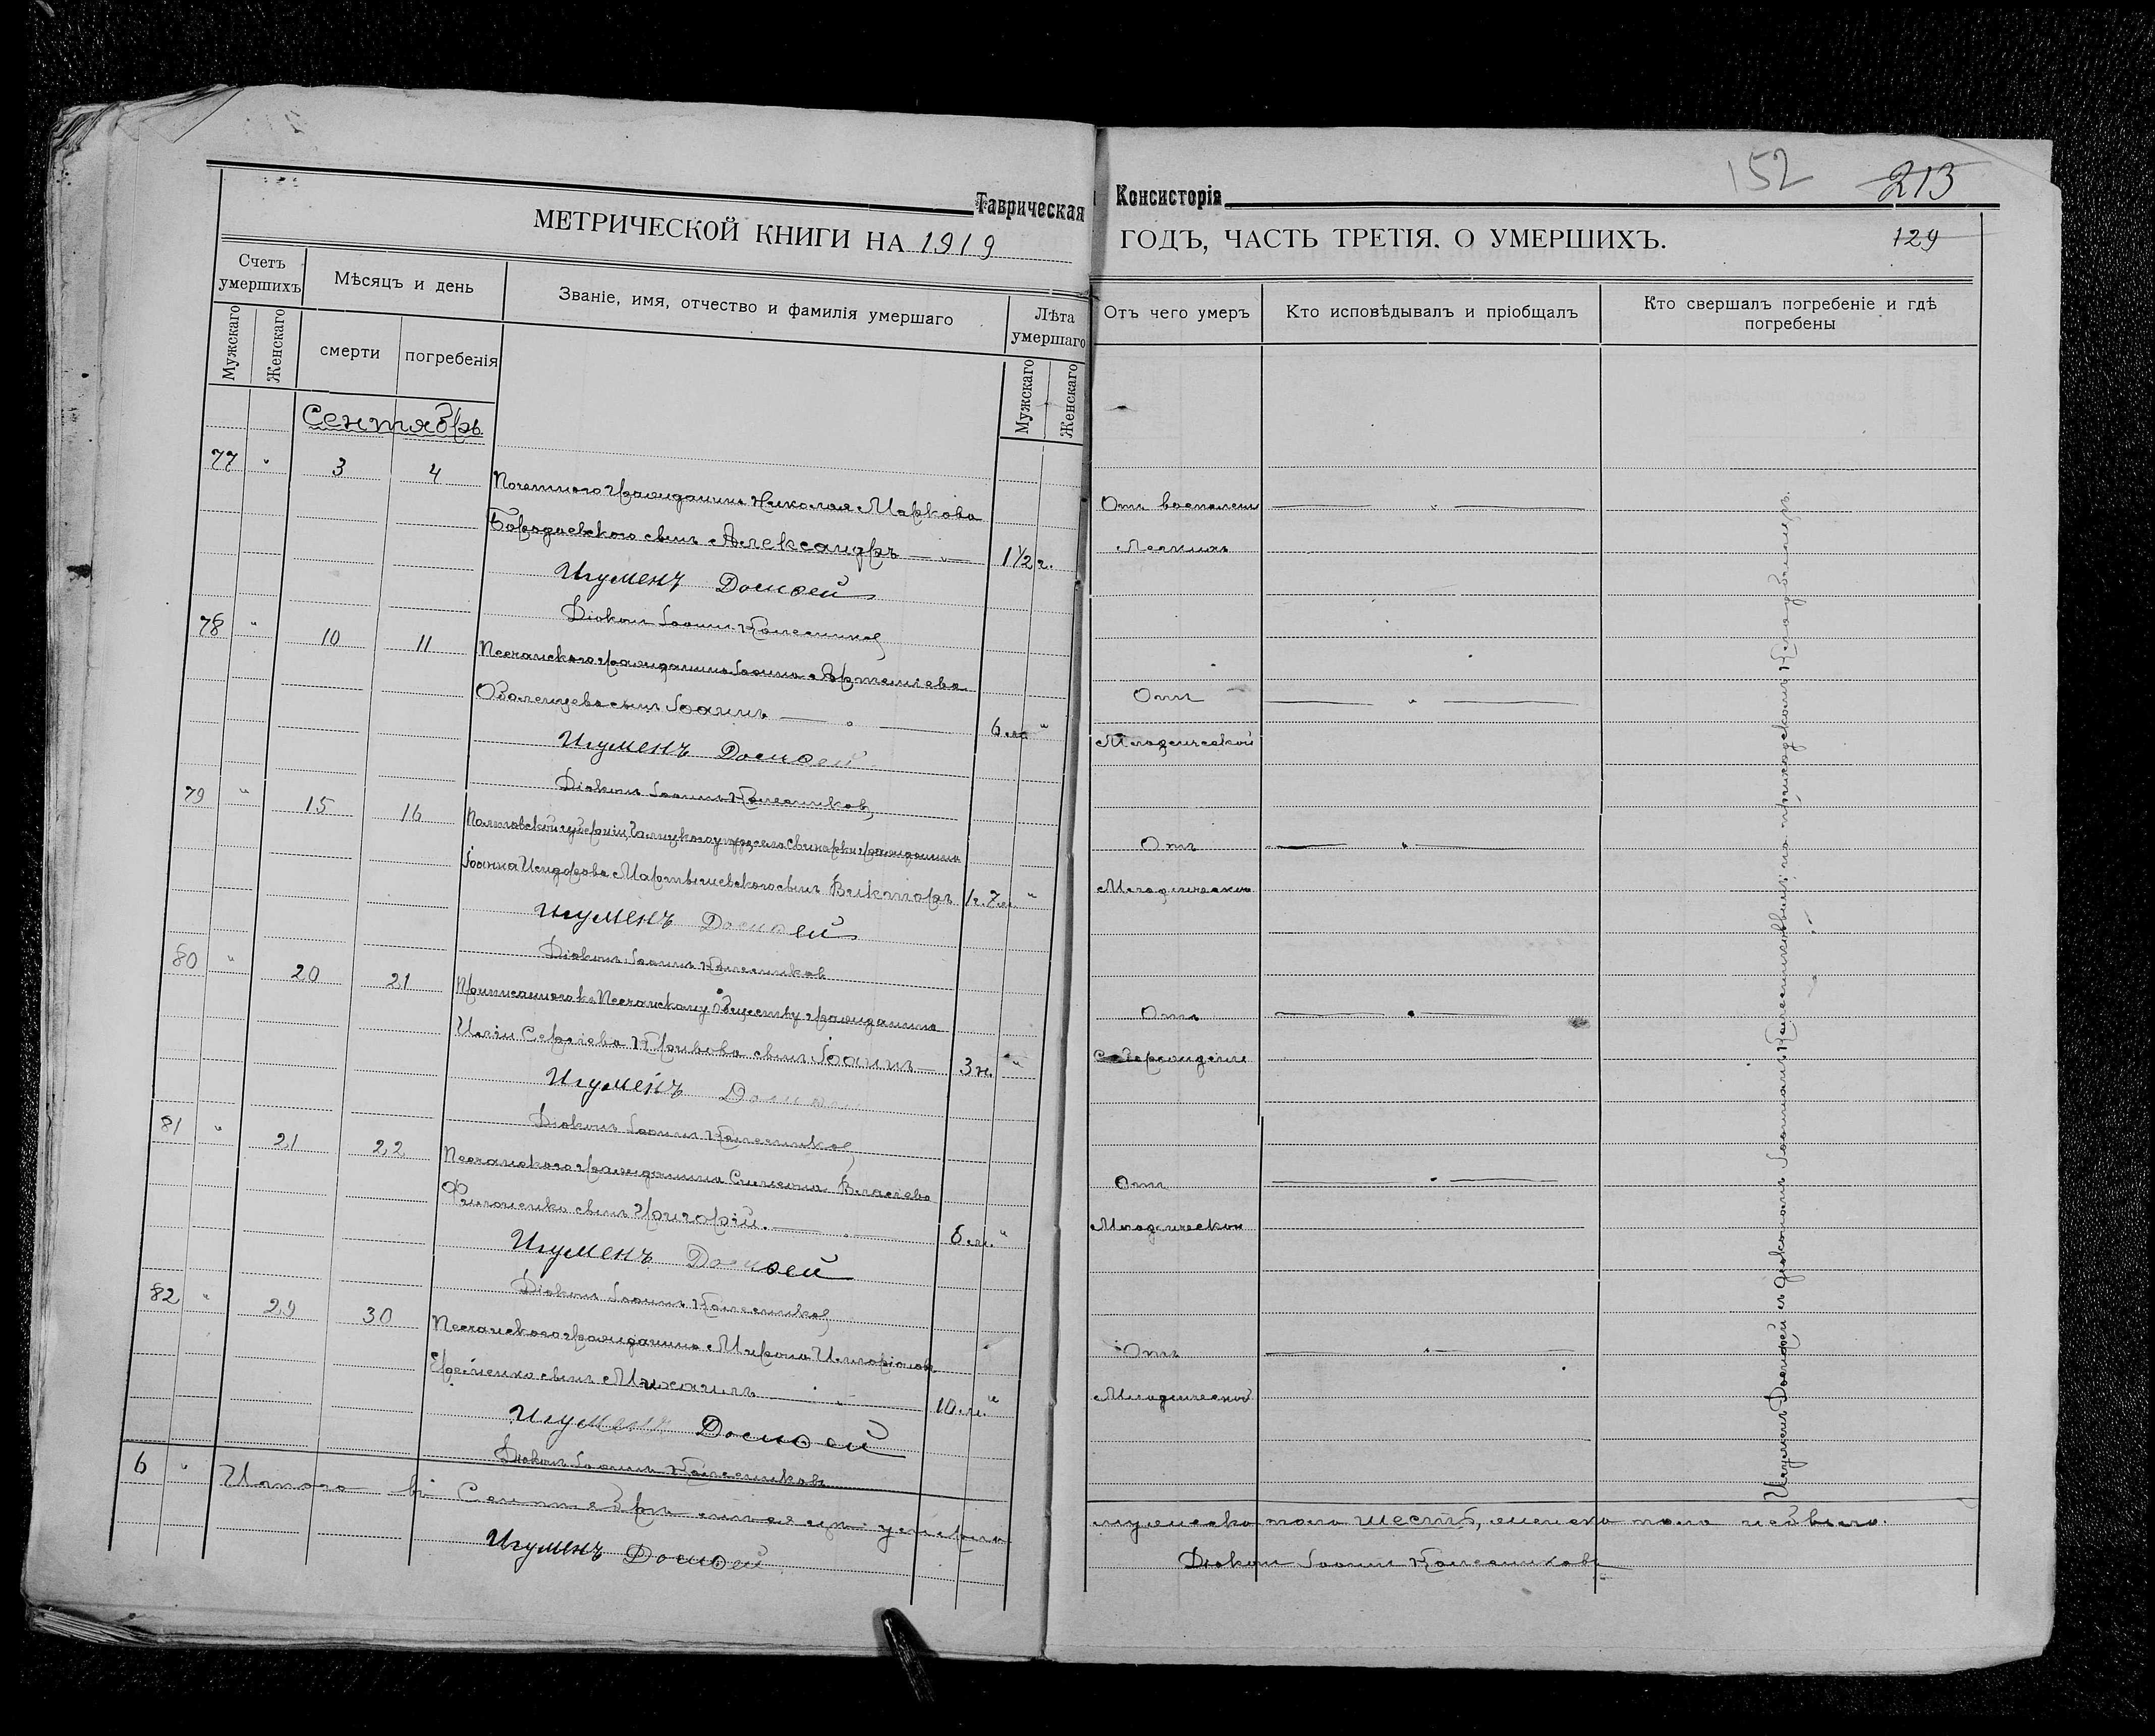 152 213
Таврическая Консисторія
МЕТРИЧЕСКОЙ КНИГИ НА 1919 ГОДЪ, ЧАСТЬ ТРЕТІЯ. О УМЕРШИХЪ. 129
Счетъ умершихъ
Мужскаго
Женскаго
Мѣсяцъ и день
смерти
погребенія
Званіе, имя, отчество и фамилія умершаго
Лѣта умершаго
Мужскаго
Женскаго
Отъ чего умеръ
Кто исповѣдывалъ и пріобщалъ
Кто свершалъ погребеніе и гдѣ
погребены
Сентябрь.
77 " 3 4 Почетного гражданина Николая Маркова
Бородаевского сынъ Александръ — " — 1 1/2 г.
Отъ воспаления
Легкихъ
Игуменъ Досиѳей
Діаконъ Іоаннъ Колесников
78 " 10 11 Песчанского гражданина Іоанна Артемиева
сынъ Іоаннъ — " — 6 м. "
Отъ
Младенческой
Игуменъ Досиѳей
Діаконъ Іоаннъ Колесниковъ
79 " 15 16 Полтавской губерніи, села гражданина
Іоанна Исидорова сынъ Викторъ 1 г. 7 м. "
Отъ
Младенческой
Игуменъ Досиѳей
Діаконъ Іоаннъ Колесников
80 " 20 21 Приписанного къ Песчанскому обществу гражданина
Иліи Сергіева сынъ Іоаннъ — 3 н. "
Отъ
Игуменъ Досиѳей
Діаконъ Іоаннъ Колесников
81 " 21 22 Песчанского гражданина Симеона Власіева
сынъ Григорій. — " — 6 м. "
Отъ
Младенческой
Игуменъ Досиѳей
Діаконъ Іоаннъ Колесников
82 " 29 30 Песчанского гражданина Мирона Илларіонова
Ефименко сынъ Михаилъ — " — 10 м. "
Отъ
Младенческой
Игуменъ Досиѳей
Діаконъ Іоаннъ Колесниковъ
Игуменъ Досиѳей съ діакономъ Іоанномъ Колесниковымъ на приходскомъ кладбищѣ.
6 " Итого въ Сентябрѣ месяцѣ умерло мужеска пола шесть, женска пола небыло.
Игуменъ Досиѳей
Діаконъ Іоаннъ Колесниковъ